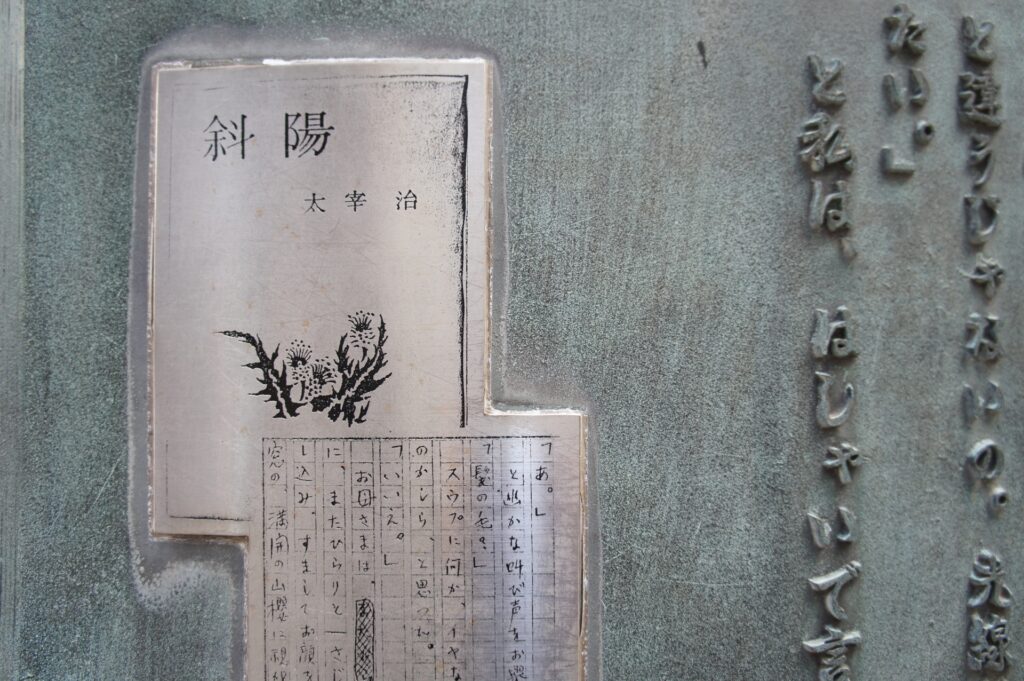 と違うぢゃないの。光線
たい。」
と私は、はしゃいで言
斜陽
太宰治
「あ。」
と幽かな叫び声をお
「髪の毛?」
スウプに何か、イヤな
のかしら、と思った。
「いいえ。」
お母さまは、
に、またひらりと一さじ
し込み、すましてお顔を
窓の、満開の山櫻に視